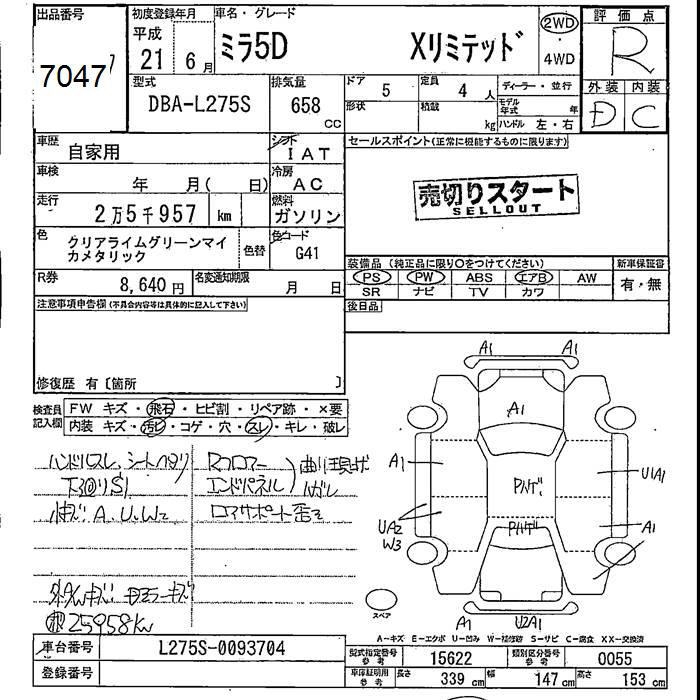 出品番号
7047
初度登録年月
平成
21 6月
車名・グレード
ミラ5D Xリミテッド
2WD
4WD
評価点
R
型式
DBA-L275S
排気量
658
cc
ドア
5
定員
4人
ディーラー・並行
形状
積載
kg
モデル年式
年
ハンドル 左・右
外装 内装
D C
車歴
自家用
シフト
IAT
セールスポイント(正常に機能するものに限ります)
車検
年 月( 日)
冷房
AC
売切りスタート
SELLOUT
走行
2万5千957 km
燃料
ガソリン
色
クリアライムグリーンマイ
カメタリック
色替
色コード
G41
装備品(純正品に限り○をつけてください)
新車保証書
PS PW ABS エアB AW
有・無
SR ナビ TV カワ
R券
8,640円
名変通知期限
月 日
後日品
注意事項申告欄(不具合内容等は具体的に記入して下さい)
修復歴 有〔箇所 〕
検査員
記入欄
FW キズ・飛石・ヒビ割・リペア跡・×要
内装 キズ・汚ビ・コゲ・穴・スレ・キレ・破レ
ハンドルスレ、シートヘタリ
下回りS1
小キズ A、U、W2
Rフロアー
エンドパネル
曲リ現状
ハガレ
ロアサポート歪ミ
25958km
A1 A1
A1
A1
Pハゲ
U1A1
Pハゲ
UA2
W3
A1
スペア
A1 U2A1
A-キズ E-エクボ U-凹み W-補修跡 S-サビ C-腐食 XX-交換済
車台番号
L275S-0093704
登録番号
型式指定番号
参考
15622
類別区分番号
参考
0055
車庫証明用
参考
長さ
339 cm
幅
147 cm
高さ
153 cm